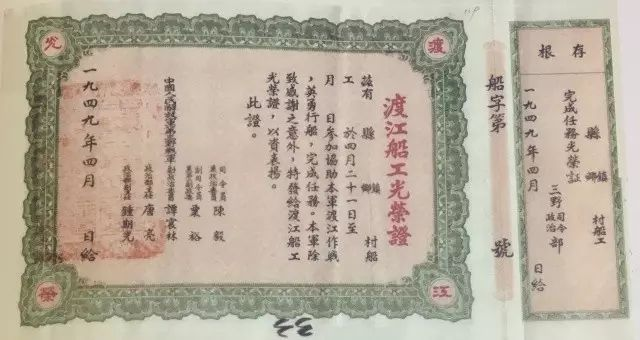 存根
縣 鄉鎮 村船工
完成任務光榮証
三野司令政治部
一九四九年四月 日給
船字第 號
渡
江
光
榮
渡江船工光榮證
茲有 縣 鄉鎮 村船
工 於四月二十一日至
月 日參加協助本軍渡江作戰
，英勇行船，完成任務。本軍除
致感謝之意外，特發給渡江船工
光榮證，以資表揚。
此證。
司令員兼政治委員 陳毅
副司令員 粟裕
中國人民解放軍第三野戰軍 副政治委員 譚震林
政治部主任 唐亮
政治部副主任 鍾期光
一九四九年四月 日給
33